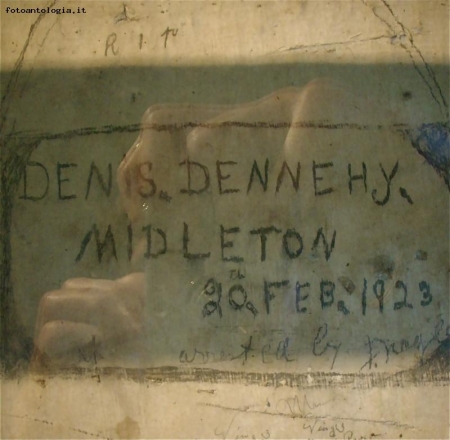 fotoantologia.it
DENIS. DENNEHY.
MIDLETON
20. FEB. 1923
arrested by